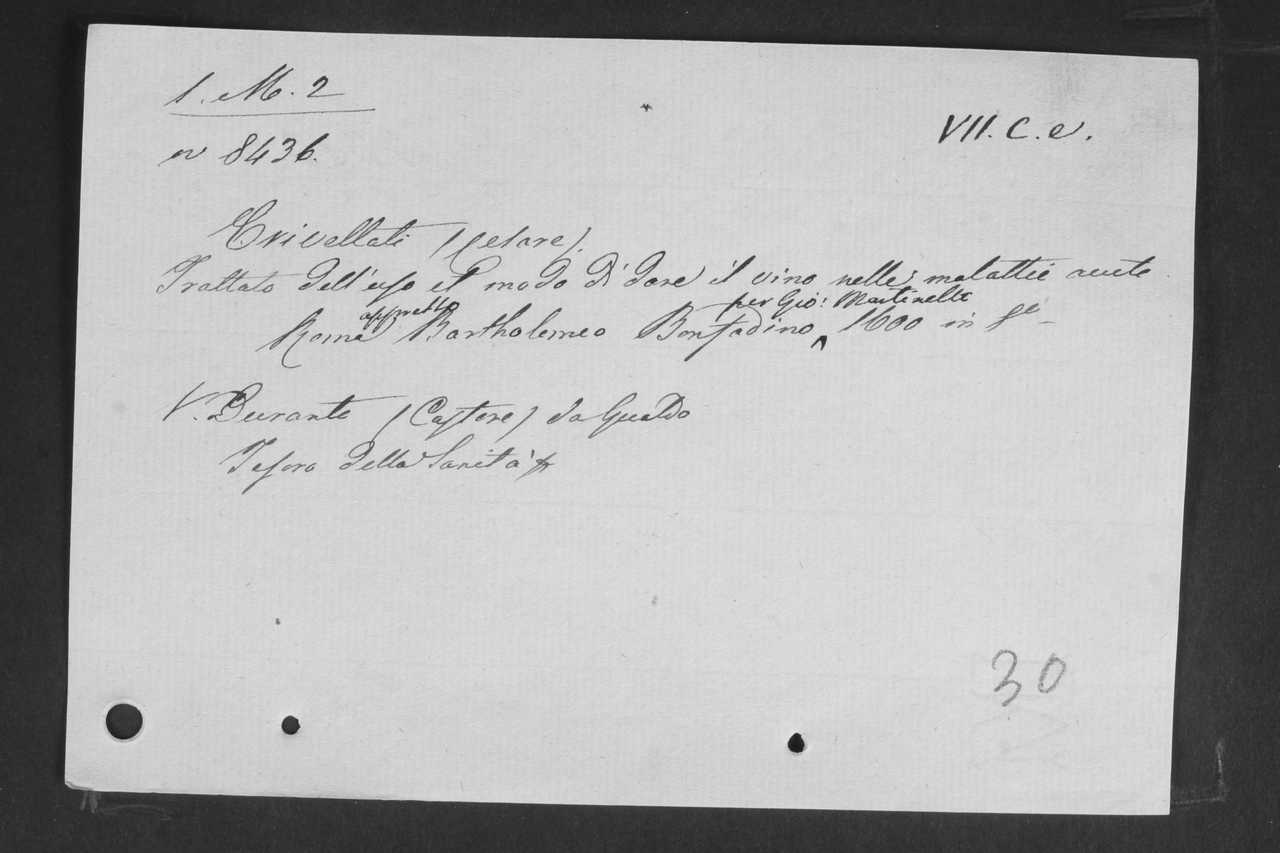 1. M. 2
VII. C. e.
n 8436.
Crivellati (Cesare).
Trattato dell'uso et modo di dare il vino nelle malattie acute
Roma appresso Bartholomeo Bonfadino per Gio: Martinelli 1600 in 8º
V. Durante (Castore) da Gualdo
Tesoro della Sanità
30